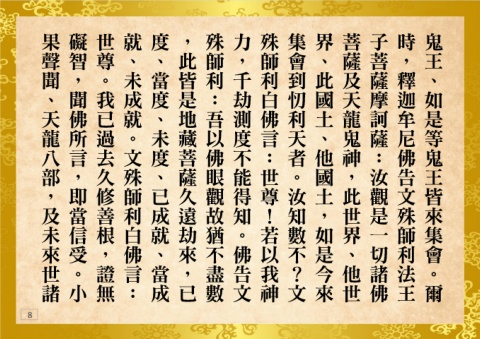 鬼王、如是等鬼王皆來集會。爾
時，釋迦牟尼佛告文殊師利法王
子菩薩摩訶薩：汝觀是一切諸佛
菩薩及天龍鬼神，此世界、他世
界、此國土、他國土，如是今來
集會到忉利天者。汝知數不？文
殊師利白佛言：世尊！若以我神
力，千劫測度不能得知。佛告文
殊師利：吾以佛眼觀故猶不盡數
，此皆是地藏菩薩久遠劫來，已
度、當度、未度、已成就、當成
就、未成就。文殊師利白佛言：
世尊。我已過去久修善根，證無
礙智，聞佛所言，即當信受。小
果聲聞、天龍八部，及未來世諸
8